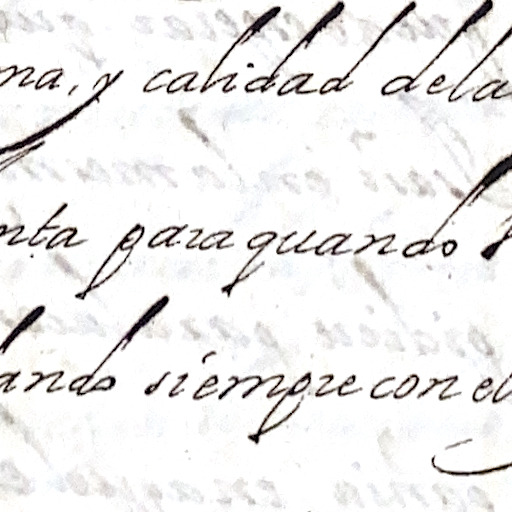 ma, y calidad dela
nta para quando
lando siempre con el